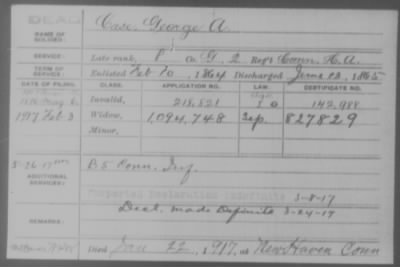 DEAD
NAME OF SOLDIER: Case, George A.
SERVICE: Late rank, P Co. G, 2 Reg't Conn. H.A.
TERM OF SERVICE: Enlisted Feb 10, 1864 Discharged June, 1865
DATE OF FILING. CLASS. APPLICATION NO. LAW. CERTIFICATE NO.
Invalid, 218,521 142,988
1917 Feb 3 Widow, 1,094,748 827829
Minor,
ADDITIONAL SERVICES: B 5 Conn. Inf.
3-8-17
REMARKS: Decl. made Definite 3-24-17
Died Jan 22, 1917, at New Haven Conn